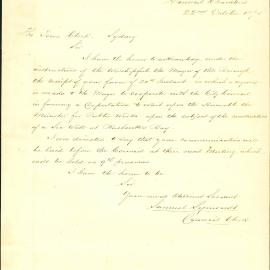 Council Chambers
22nd October
The Town Clerk. Sydney
Sir
I have the honor to acknowledge under the
instructions of the Worshipful the Mayor of the Borough,
the receipt of your favor of 20th Instant in which a request
is made to the Mayor to cooperate with the City Council
in forming a Deputation to wait upon the Honorable the
Minister for Public Works upon the subject of the construction
of a Sea Wall at Rushcutters Bay.
I am directed to say that your communication will
be laid before the Council at their next Meeting which
will be held on 9th proximo
I have the honor to be
Sir
Your most obedient Servant
Samuel
Council Clerk